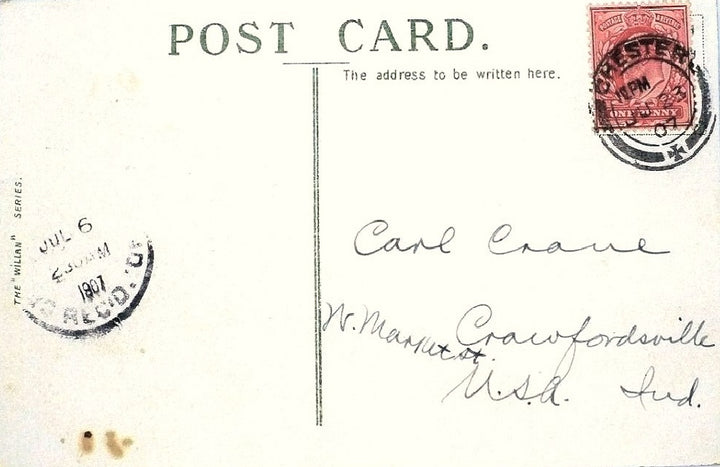 POST CARD.
The address to be written here.
POSTAGE REVENUE
ONE PENNY
CHESTER
PM
07
THE "WILLAN" SERIES.
JUL 6
AM
1907
REC'D.
Carl Crane
W. Market st.
Crawfordsville
U.S.A. Ind.